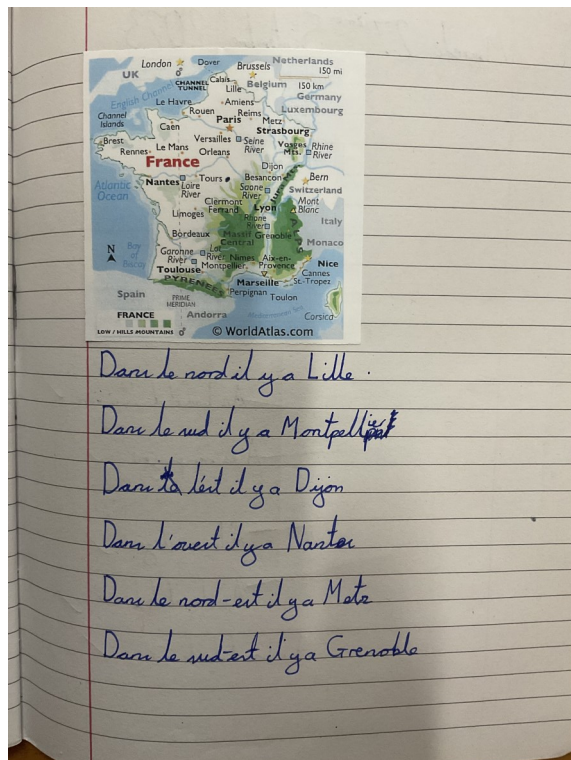 London
Dover
Brussels
Netherlands
150 mi
UK
Calais
CHANNEL TUNNEL
Lille
Belgium
150 km
Germany
English Channel
Le Havre
Amiens
Luxembourg
Channel Islands
Rouen
Reims
Metz
Caen
Paris
Strasbourg
Brest
Versailles
Seine River
Vosges Mts.
Rhine River
Rennes
Le Mans
Orleans
France
Dijon
Nantes
Tours
Besancon
Bern
Loire River
Saone River
Switzerland
Atlantic Ocean
Clermont Ferrand
Lyon
Mont Blanc
Limoges
Rhone River
Italy
Bordeaux
Massif Central
Grenoble
Monaco
N
Bay of Biscay
Garonne River
Lot River
Nimes
Aix-en-Provence
Nice
Toulouse
Montpellier
Cannes
St.-Tropez
PYRENEES
Marseille
Spain
Perpignan
Toulon
PRIME MERIDIAN
Andorra
Mediterranean Sea
Corsica
FRANCE
LOW / HILLS MOUNTAINS
© WorldAtlas.com
Dans le nord il y a Lille.
Dans le sud il y a Montpellier
Dans l'est il y a Dijon
Dans l'ouest il y a Nantes
Dans le nord-est il y a Metz
Dans le sud-est il y a Grenoble